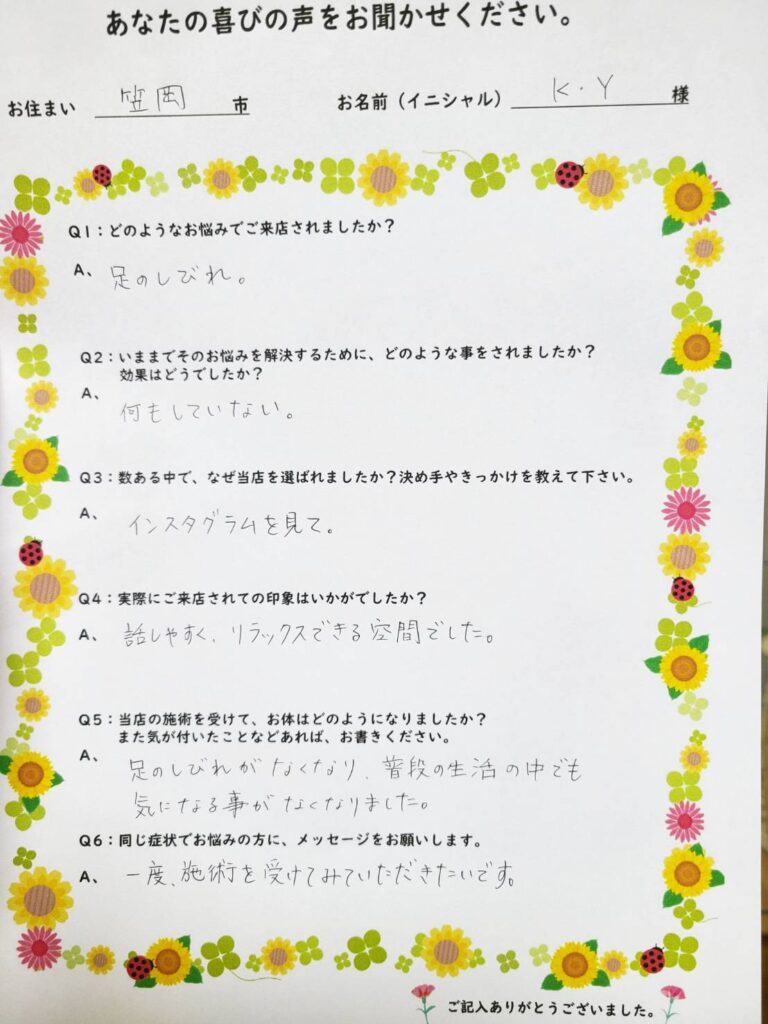 あなたの喜びの声をお聞かせください。
お住まい 笠岡 市 お名前（イニシャル） K.Y 様
Q1：どのようなお悩みでご来店されましたか？
A、足のしびれ。
Q2：いままでそのお悩みを解決するために、どのような事をされましたか？
効果はどうでしたか？
A、何もしていない。
Q3：数ある中で、なぜ当店を選ばれましたか？決め手やきっかけを教えて下さい。
A、インスタグラムを見て。
Q4：実際にご来店されての印象はいかがでしたか？
A、話しやすく、リラックスできる空間でした。
Q5：当店の施術を受けて、お体はどのようになりましたか？
また気が付いたことなどあれば、お書きください。
A、足のしびれがなくなり、普段の生活の中でも
気になる事がなくなりました。
Q6：同じ症状でお悩みの方に、メッセージをお願いします。
A、一度、施術を受けてみていただきたいです。
ご記入ありがとうございました。